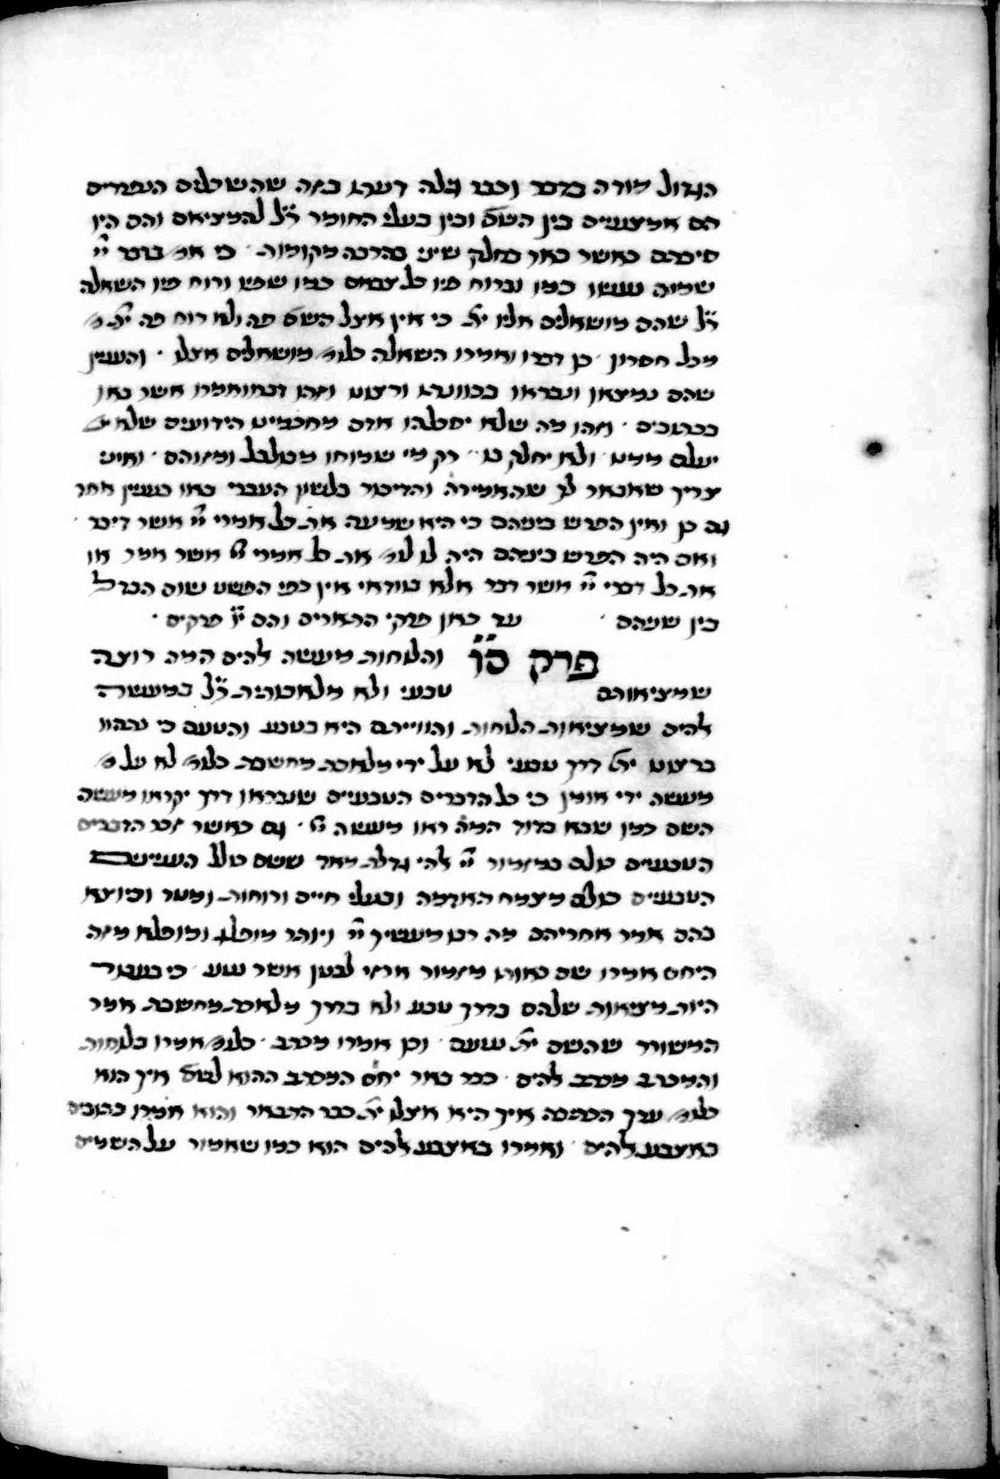 הגדול מורה בדבר וכבר גלה דעתו בזה שהשכלים הנפרדים
הם אמצעיים בין השם ובין בעלי החומר ר״ל להמציאם והם היו
סיבתם כאשר באר בחלק שיני בהרבה מקומות כי אמ׳ בדבר יי׳
שמים נעשו כמו וברוח פיו כל צבאם כמו שפש ורוח פיו השאלה
ר״ל שהם מושאלים אליו ית׳ כי אין אצל השם פה ולא רוח פה ית׳
מכל חסרון כן דברו ואמרו השאלה כלומ׳ מושאלים אצלו והענין
שהם נמצאו ונבראו בכוונתו ורצונו וזהו דברו ומאמרו אשר באו
בכתובים וזהו מה שלא יסכלהו אדם מחכמינו הידועים שלא
יעלם ממנו ולא יחלק בו רק מי שמוחו מבולבל ומזוהם ואינו
צריך שאבאר לך שהאמירה והדיבור בלשון העברי באו בענין אחד
גם כן ואין הפרש ביניהם כי היא שמעה את כל אמרי יי׳ אשר דיבר
ואם היה הפרש ביניהם היה לו לומ׳ את כל אמרי יי׳ אשר אמר או
את כל דברי יי׳ אשר דבר אלא בוודאי אין כפי הפשט שום הבדל
בין שניהם עד כאן פרקי התארים והם פרקים
פרק ס״ו והלוחות מעשה להים המה רוצה
שמציאותם טבעי ולא מלאכותית ר״ל במעשה
להים שמציאות הלוחות והווייתם היא בטבע והטעם כי נהוו
ברצונו ית׳ דרך טבעי לא על ידי מלאכת מחשבת כלומ׳ לא על
מעשה ידי אומן כי כל הדברים הטבעיים שנבראו דרך יקראו מעשה
השם כמו שבא בדוד המה ראו מעשה יי׳ גם כאשר זכר הדברים
הטבעיים כולם במזמור יי׳ להי גדלת מאד ששם כולל הענינים
הטבעיים כולם מצמח האדמה ובעלי חיים ורוחות ומטר וכיוצא
בהם אמר אחריהם מה רבו מעשיך יי׳ ויותר מופלג ומופלא מזה
היחס אמרו שם באותו מזמור ארזי לבנון אשר נטע כי בעבור
היות מציאות שלהם בדרך טבע ולא בדרך מלאכת מחשבת אמר
המשורר שהשם ית׳ נטעם וכן אמרו מכתב כלומ׳ אמרו בלוחות
והמכתב מכתב להים כבר באר יחס המכתב ההוא לשם איך הוא
כלומ׳ ערך הכתיבה איך היא אצלו ית׳ כבר התבאר והוא אמרו כתובים
באצבע להים ואמרו באצבע להים הוא כמו שאמור על השמים